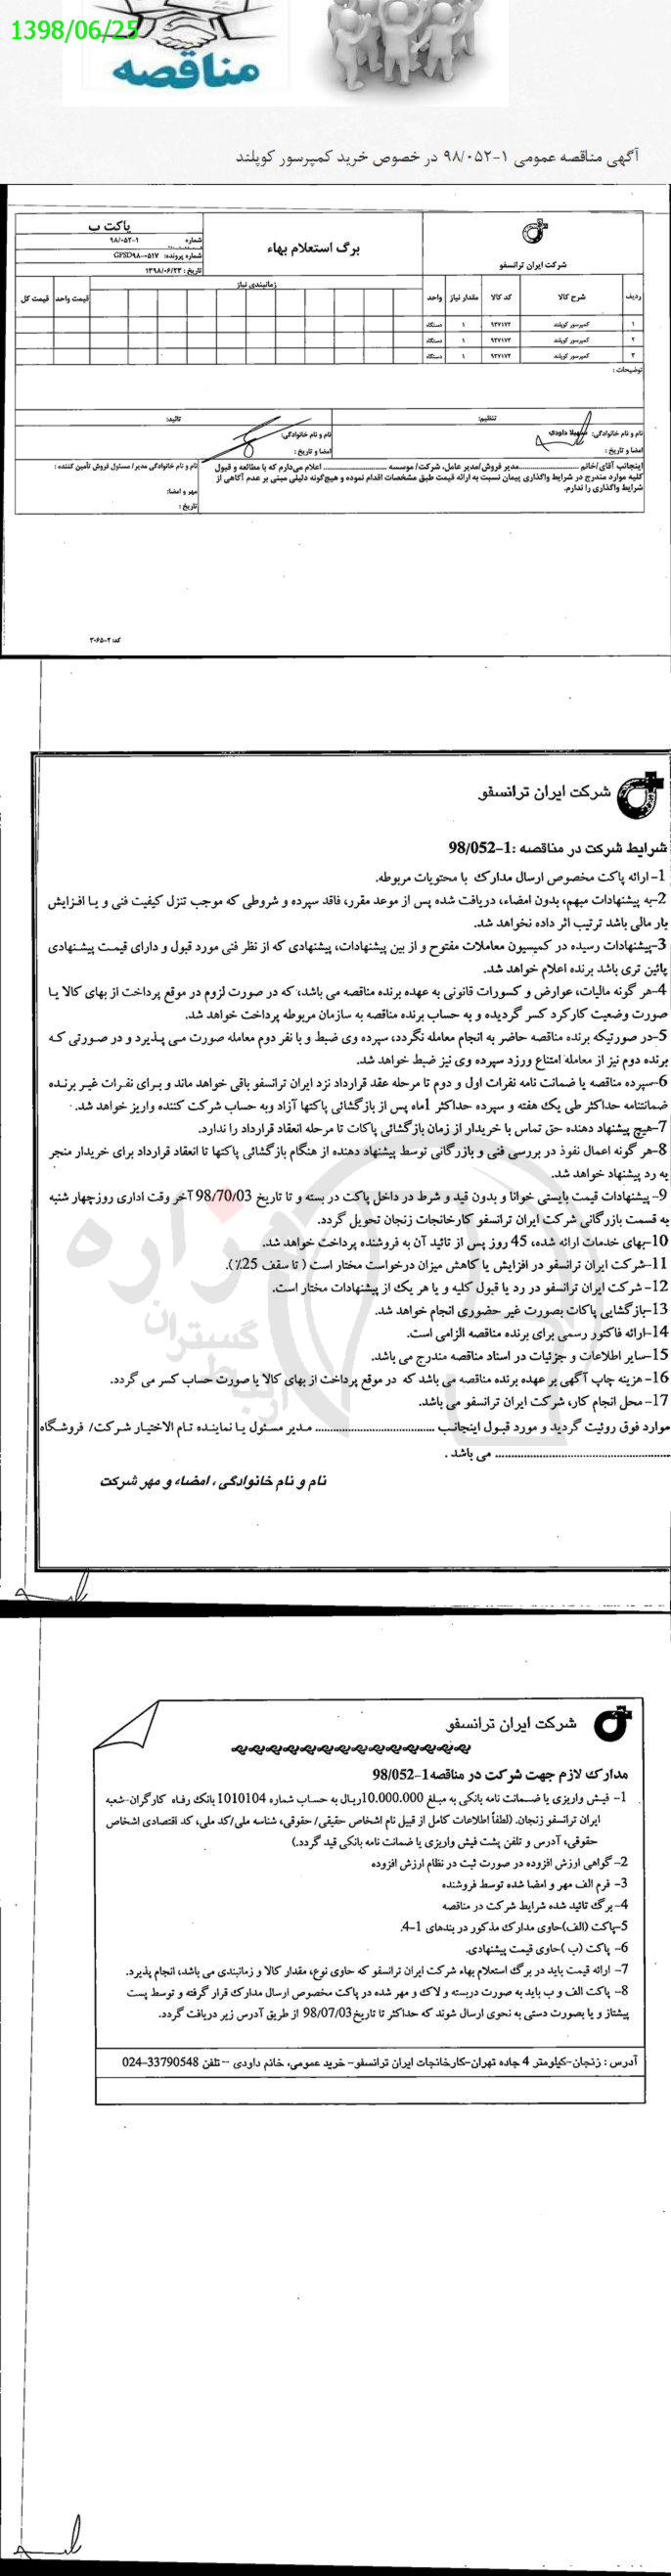 1398/06/25
مناقصه
آگهی مناقصه عمومی ۱-۹۸/۰۵۲ در خصوص خرید کمپرسور کوپلند
پاکت ب
شماره ۹۸/۰۵۲-۱
شماره پرونده:
تاریخ : ۱۳۹۸/۰۶/۲۳
برگ استعلام بهاء
شرکت ایران ترانسفو
ردیف شرح کالا کد کالا مقدار نیاز واحد زمانبندی نیاز قیمت واحد قیمت کل
۱ کمپرسور کوپلند ۹۲۷۱۷۲ ۱ دستگاه
۲ کمپرسور کوپلند ۹۲۷۱۷۲ ۱ دستگاه
۳ کمپرسور کوپلند ۹۲۷۱۷۲ ۱ دستگاه
توضیحات :
تنظیم: تائید:
نام و نام خانوادگی: سهیلا داودی نام و نام خانوادگی:
امضا و تاریخ : امضا و تاریخ :
اینجانب آقای/خانم ............ مدیر فروش/مدیر عامل، شرکت/ موسسه ............ اعلام می‌دارم که با مطالعه و قبول
کلیه موارد مندرج در شرایط واگذاری پیمان نسبت به ارائه قیمت طبق مشخصات اقدام نموده و هیچ‌گونه دلیلی مبنی بر عدم آگاهی از
شرایط واگذاری را ندارم.
نام و نام خانوادگی مدیر/ مسئول فروش تأمین کننده :
مهر و امضا:
تاریخ :
کد: ۲-۳۰۶۵
شرکت ایران ترانسفو
شرایط شرکت در مناقصه :1-98/052
1-ارائه پاکت مخصوص ارسال مدارک با محتویات مربوطه.
2-به پیشنهادات مبهم، بدون امضاء، دریافت شده پس از موعد مقرر، فاقد سپرده و شروطی که موجب تنزل کیفیت فنی و یا افزایش
بار مالی باشد ترتیب اثر داده نخواهد شد.
3-پیشنهادات رسیده در کمیسیون معاملات مفتوح و از بین پیشنهادات، پیشنهادی که از نظر فنی مورد قبول و دارای قیمت پیشنهادی
پائین تری باشد برنده اعلام خواهد شد.
4-هر گونه مالیات، عوارض و کسورات قانونی به عهده برنده مناقصه می باشد، که در صورت لزوم در موقع پرداخت از بهای کالا یا
صورت وضعیت کارکرد کسر گردیده و به حساب برنده مناقصه به سازمان مربوطه پرداخت خواهد شد.
5-در صورتیکه برنده مناقصه حاضر به انجام معامله نگردد، سپرده وی ضبط و با نفر دوم معامله صورت می پذیرد و در صورتی که
برنده دوم نیز از معامله امتناع ورزد سپرده وی نیز ضبط خواهد شد.
6-سپرده مناقصه یا ضمانت نامه نفرات اول و دوم تا مرحله عقد قرارداد نزد ایران ترانسفو باقی خواهد ماند و برای نفرات غیر برنده
ضمانتنامه حداکثر طی یک هفته و سپرده حداکثر 1ماه پس از بازگشائی پاکتها آزاد وبه حساب شرکت کننده واریز خواهد شد.
7-هیچ پیشنهاد دهنده حق تماس با خریدار از زمان بازگشائی پاکات تا مرحله انعقاد قرارداد را ندارد.
8-هر گونه اعمال نفوذ در بررسی فنی و بازرگانی توسط پیشنهاد دهنده از هنگام بازگشائی پاکتها تا انعقاد قرارداد برای خریدار منجر
به رد پیشنهاد خواهد شد.
9- پیشنهادات قیمت بایستی خوانا و بدون قید و شرط در داخل پاکت در بسته و تا تاریخ 98/70/03 آخر وقت اداری روزچهار شنبه
به قسمت بازرگانی شرکت ایران ترانسفو کارخانجات زنجان تحویل گردد.
10-بهای خدمات ارائه شده، 45 روز پس از تائید آن به فروشنده پرداخت خواهد شد.
11-شرکت ایران ترانسفو در افزایش یا کاهش میزان درخواست مختار است ( تا سقف 25٪).
12- شرکت ایران ترانسفو در رد یا قبول کلیه و یا هر یک از پیشنهادات مختار است.
13-بازگشایی پاکات بصورت غیر حضوری انجام خواهد شد.
14-ارائه فاکتور رسمی برای برنده مناقصه الزامی است.
15-سایر اطلاعات و جزئیات در اسناد مناقصه مندرج می باشد.
16- هزینه چاپ آگهی بر عهده برنده مناقصه می باشد که در موقع پرداخت از بهای کالا یا صورت حساب کسر می گردد.
17- محل انجام کار، شرکت ایران ترانسفو می باشد.
موارد فوق روئیت گردید و مورد قبول اینجانب ............ مدیر مسئول یا نماینده تام الاختیار شرکت/ فروشگاه
............ می باشد .
نام و نام خانوادگی ، امضاء و مهر شرکت
هزاره
گستران
شرکت ایران ترانسفو
مدارک لازم جهت شرکت در مناقصه1-98/052
1- فیش واریزی یا ضمانت نامه بانکی به مبلغ 10.000.000ریال به حساب شماره 1010104 بانک رفاه کارگران-شعبه
ایران ترانسفو زنجان. (لطفاً اطلاعات کامل از قبیل نام اشخاص حقیقی/ حقوقی، شناسه ملی/کد ملی، کد اقتصادی اشخاص
حقوقی، آدرس و تلفن پشت فیش واریزی یا ضمانت نامه بانکی قید گردد.)
2- گواهی ارزش افزوده در صورت ثبت در نظام ارزش افزوده
3- فرم الف مهر و امضا شده توسط فروشنده
4-برگ تائید شده شرایط شرکت در مناقصه
5-پاکت (الف)حاوی مدارک مذکور در بندهای 1-4.
6- پاکت (ب )حاوی قیمت پیشنهادی.
7- ارائه قیمت باید در برگ استعلام بهاء شرکت ایران ترانسفو که حاوی نوع، مقدار کالا و زمانبندی می باشد، انجام پذیرد.
8- پاکت الف و ب باید به صورت دربسته و لاک و مهر شده در پاکت مخصوص ارسال مدارک قرار گرفته و توسط پست
پیشتاز و یا بصورت دستی به نحوی ارسال شوند که حداکثر تا تاریخ98/07/03 از طریق آدرس زیر دریافت گردد.
آدرس : زنجان-کیلومتر 4 جاده تهران-کارخانجات ایران ترانسفو- خرید عمومی، خانم داودی -- تلفن 33790548-024